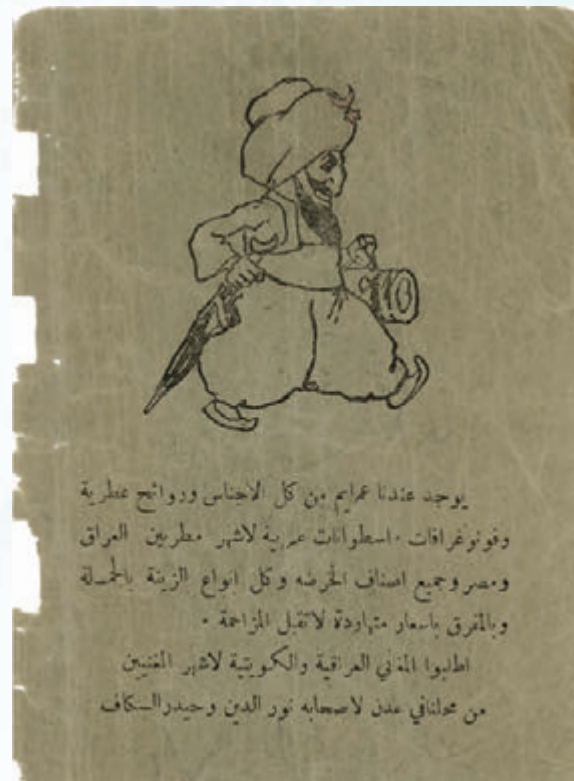 يوجد عندنا عمايم من كل الاجناس وروائح عطرية
وفونوغرافات ، اسطوانات عربية لاشهر مطربين العراق
ومصر وجميع اصناف الخرضه وكل انواع الزينة بالجملة
وبالمفرق باسعار متهاودة لاتقبل المزاحمة .
اطلبوا المغاني العراقية والكويتية لاشهر المغنيين
من محلنافي عدن لاصحابه نور الدين وحيدر السكاف